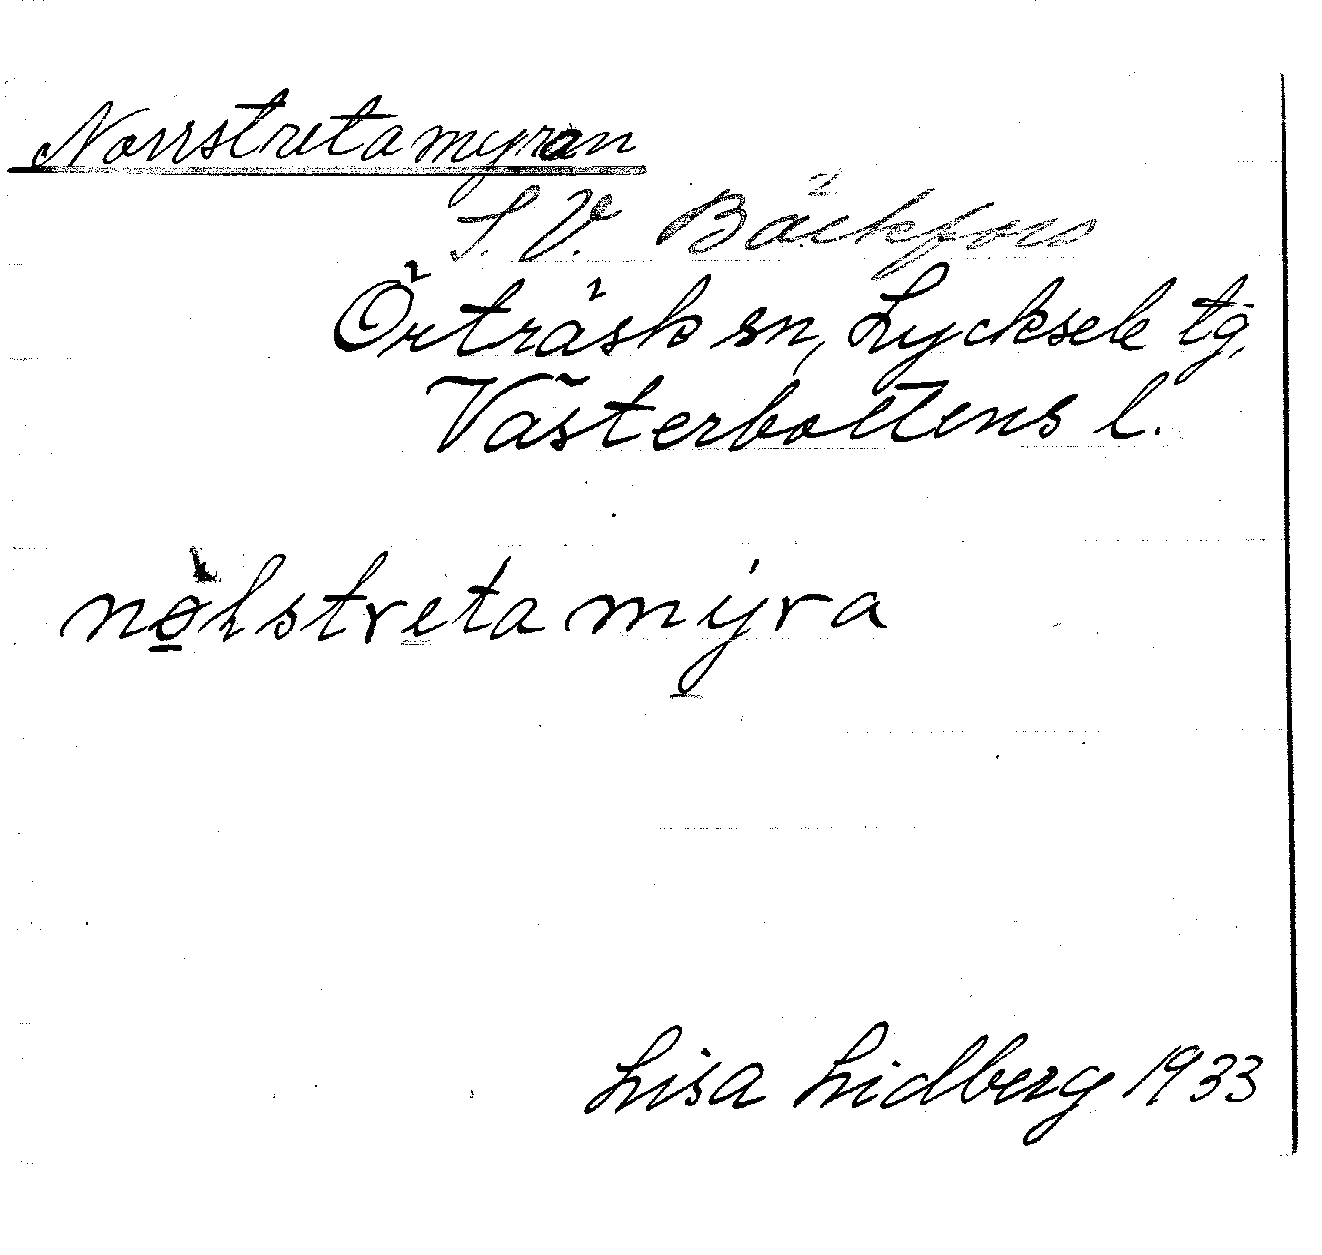 Norrstretamyran
S. V. Bäckfors
Örträsk sn, Lycksele tg,
Västerbottens l.
nọ̀hstreta mýra
Lisa Lidberg 1933